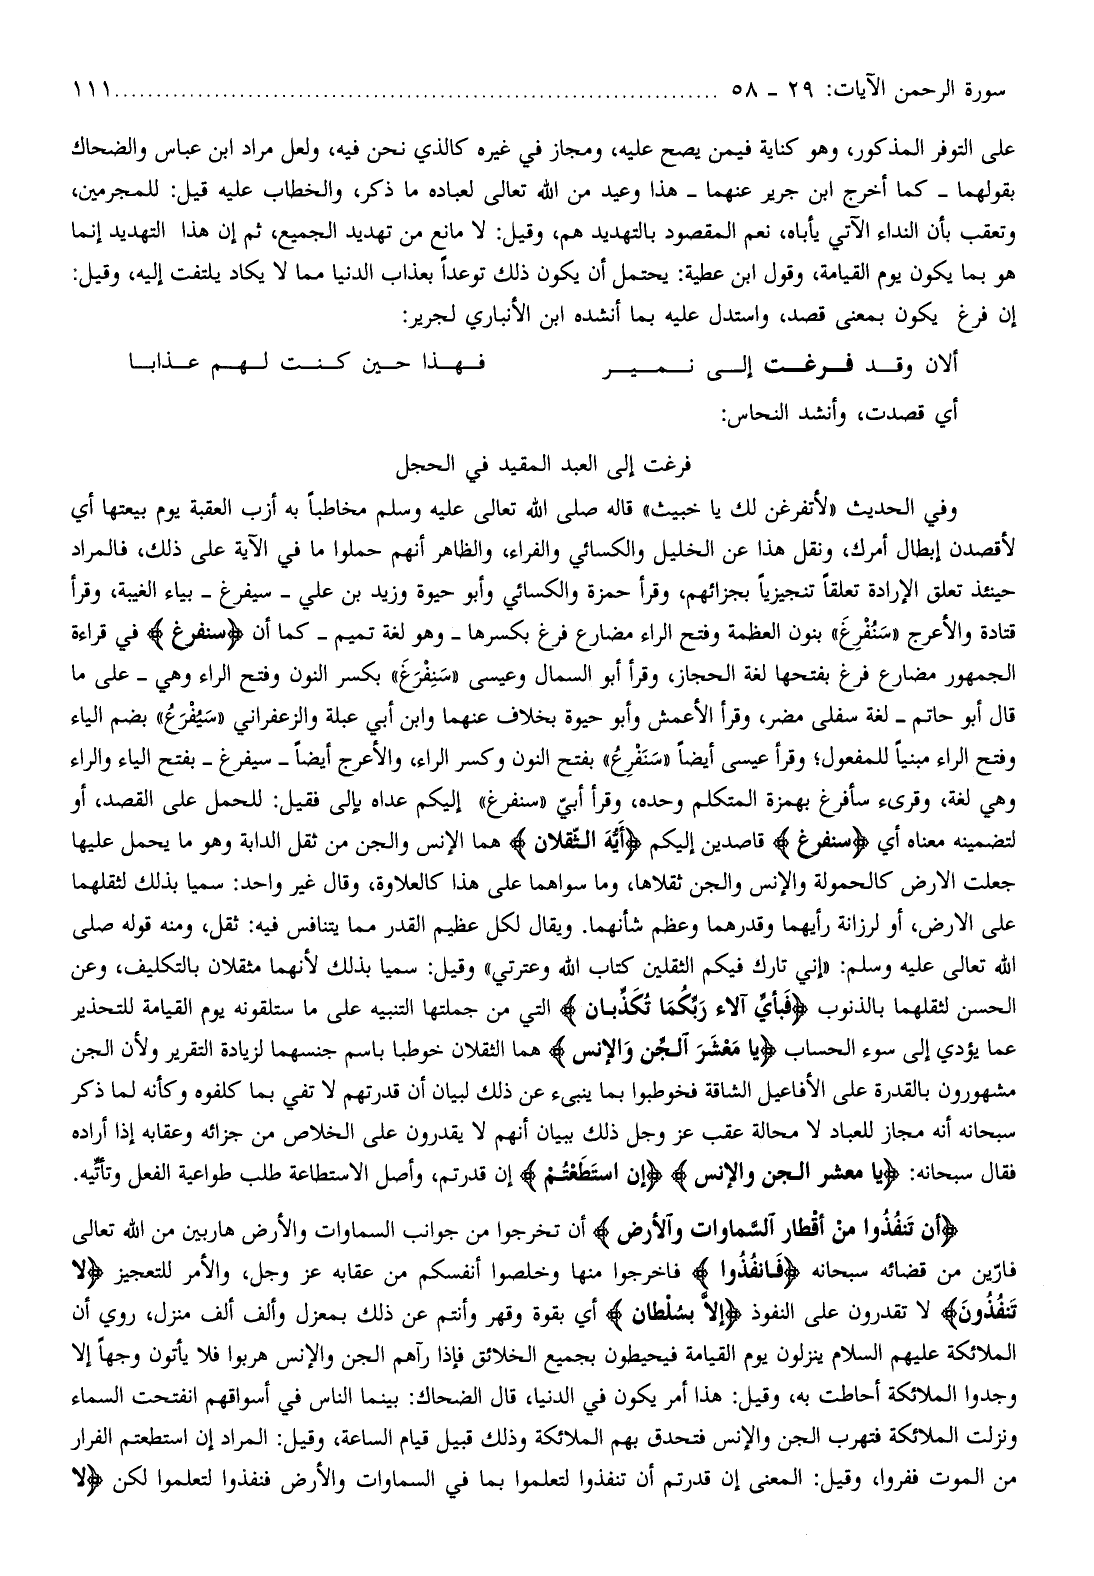 سورة الرحمن الآيات: ٢٩ ـ ٥٨ ........................................................................ ١١١
على التوفر المذكور، وهو كناية فيمن يصح عليه، ومجاز في غيره كالذي نحن فيه، ولعل مراد ابن عباس والضحاك
بقولهما ـ كما أخرج ابن جرير عنهما ـ هذا وعيد من الله تعالى لعباده ما ذكر، والخطاب عليه قيل: للمجرمين،
وتعقب بأن النداء الآتي يأباه، نعم المقصود بالتهديد هم، وقيل: لا مانع من تهديد الجميع، ثم إن هذا التهديد إنما
هو بما يكون يوم القيامة، وقول ابن عطية: يحتمل أن يكون ذلك توعداً بعذاب الدنيا مما لا يكاد يلتفت إليه، وقيل:
إن فرغ يكون بمعنى قصد، واستدل عليه بما أنشده ابن الأنباري لجرير:
ألان وقـد فـرغـت إلـى نـمـيـر فـهـذا حـين كـنـت لـهـم عـذابـا
أي قصدت، وأنشد النحاس:
فرغت إلى العبد المقيد في الحجل
وفي الحديث «لأتفرغن لك يا خبيث» قاله صلى الله تعالى عليه وسلم مخاطباً به أزب العقبة يوم بيعتها أي
لأقصدن إبطال أمرك، ونقل هذا عن الخليل والكسائي والفراء، والظاهر أنهم حملوا ما في الآية على ذلك، فالمراد
حينئذ تعلق الإرادة تعلقاً تنجيزياً بجزائهم، وقرأ حمزة والكسائي وأبو حيوة وزيد بن علي ـ سيفرغ ـ بياء الغيبة، وقرأ
قتادة والأعرج «سَنُفْرِغَ» بنون العظمة وفتح الراء مضارع فرغ بكسرها ـ وهو لغة تميم ـ كما أن ﴿سنفرغ﴾ في قراءة
الجمهور مضارع فرغ بفتحها لغة الحجاز، وقرأ أبو السمال وعيسى «سَنِفْرَغَ» بكسر النون وفتح الراء وهي ـ على ما
قال أبو حاتم ـ لغة سفلى مضر، وقرأ الأعمش وأبو حيوة بخلاف عنهما وابن أبي عبلة والزعفراني «سَيُفْرَغُ» بضم الياء
وفتح الراء مبنياً للمفعول؛ وقرأ عيسى أيضاً «سَنَفْرِغُ» بفتح النون وكسر الراء، والأعرج أيضاً ـ سيفرغ ـ بفتح الياء والراء
وهي لغة، وقرىء سأفرغ بهمزة المتكلم وحده، وقرأ أبيّ «سنفرغ» إليكم عداه بإلى فقيل: للحمل على القصد، أو
لتضمينه معناه أي ﴿سنفرغ﴾ قاصدين إليكم ﴿أَيُّهَ الثّقلان﴾ هما الإنس والجن من ثقل الدابة وهو ما يحمل عليها
جعلت الارض كالحمولة والإنس والجن ثقلاها، وما سواهما على هذا كالعلاوة، وقال غير واحد: سميا بذلك لثقلهما
على الارض، أو لرزانة رأيهما وقدرهما وعظم شأنهما. ويقال لكل عظيم القدر مما يتنافس فيه: ثقل، ومنه قوله صلى
الله تعالى عليه وسلم: «إني تارك فيكم الثقلين كتاب الله وعترتي» وقيل: سميا بذلك لأنهما مثقلان بالتكليف، وعن
الحسن لثقلهما بالذنوب ﴿فَبأيِّ آلاء رَبِّكُمَا تُكَذِّبان﴾ التي من جملتها التنبيه على ما ستلقونه يوم القيامة للتحذير
عما يؤدي إلى سوء الحساب ﴿يا مَعْشَرَ الجِّن وَالإنس﴾ هما الثقلان خوطبا باسم جنسهما لزيادة التقرير ولأن الجن
مشهورون بالقدرة على الأفاعيل الشاقة فخوطبوا بما ينبىء عن ذلك لبيان أن قدرتهم لا تفي بما كلفوه وكأنه لما ذكر
سبحانه أنه مجاز للعباد لا محالة عقب عز وجل ذلك ببيان أنهم لا يقدرون على الخلاص من جزائه وعقابه إذا أراده
فقال سبحانه: ﴿يا معشر الجن والإنس﴾ ﴿إن استَطَعْتُمْ﴾ إن قدرتم، وأصل الاستطاعة طلب طواعية الفعل وتأتِّيه.
﴿أن تَنفُذُوا منْ أقْطار السَّماوات والأرض﴾ أن تخرجوا من جوانب السماوات والأرض هاربين من الله تعالى
فارّين من قضائه سبحانه ﴿فَانفُذُوا﴾ فاخرجوا منها وخلصوا أنفسكم من عقابه عز وجل، والأمر للتعجيز ﴿لا
تَنفُذُونَ﴾ لا تقدرون على النفوذ ﴿إلاَّ بسُلْطان﴾ أي بقوة وقهر وأنتم عن ذلك بمعزل وألف ألف منزل، روي أن
الملائكة عليهم السلام ينزلون يوم القيامة فيحيطون بجميع الخلائق فإذا رآهم الجن والإنس هربوا فلا يأتون وجهاً إلا
وجدوا الملائكة أحاطت به، وقيل: هذا أمر يكون في الدنيا، قال الضحاك: بينما الناس في أسواقهم انفتحت السماء
ونزلت الملائكة فتهرب الجن والإنس فتحدق بهم الملائكة وذلك قبيل قيام الساعة، وقيل: المراد إن استطعتم الفرار
من الموت ففروا، وقيل: المعنى إن قدرتم أن تنفذوا لتعلموا بما في السماوات والأرض فنفذوا لتعلموا لكن ﴿لا